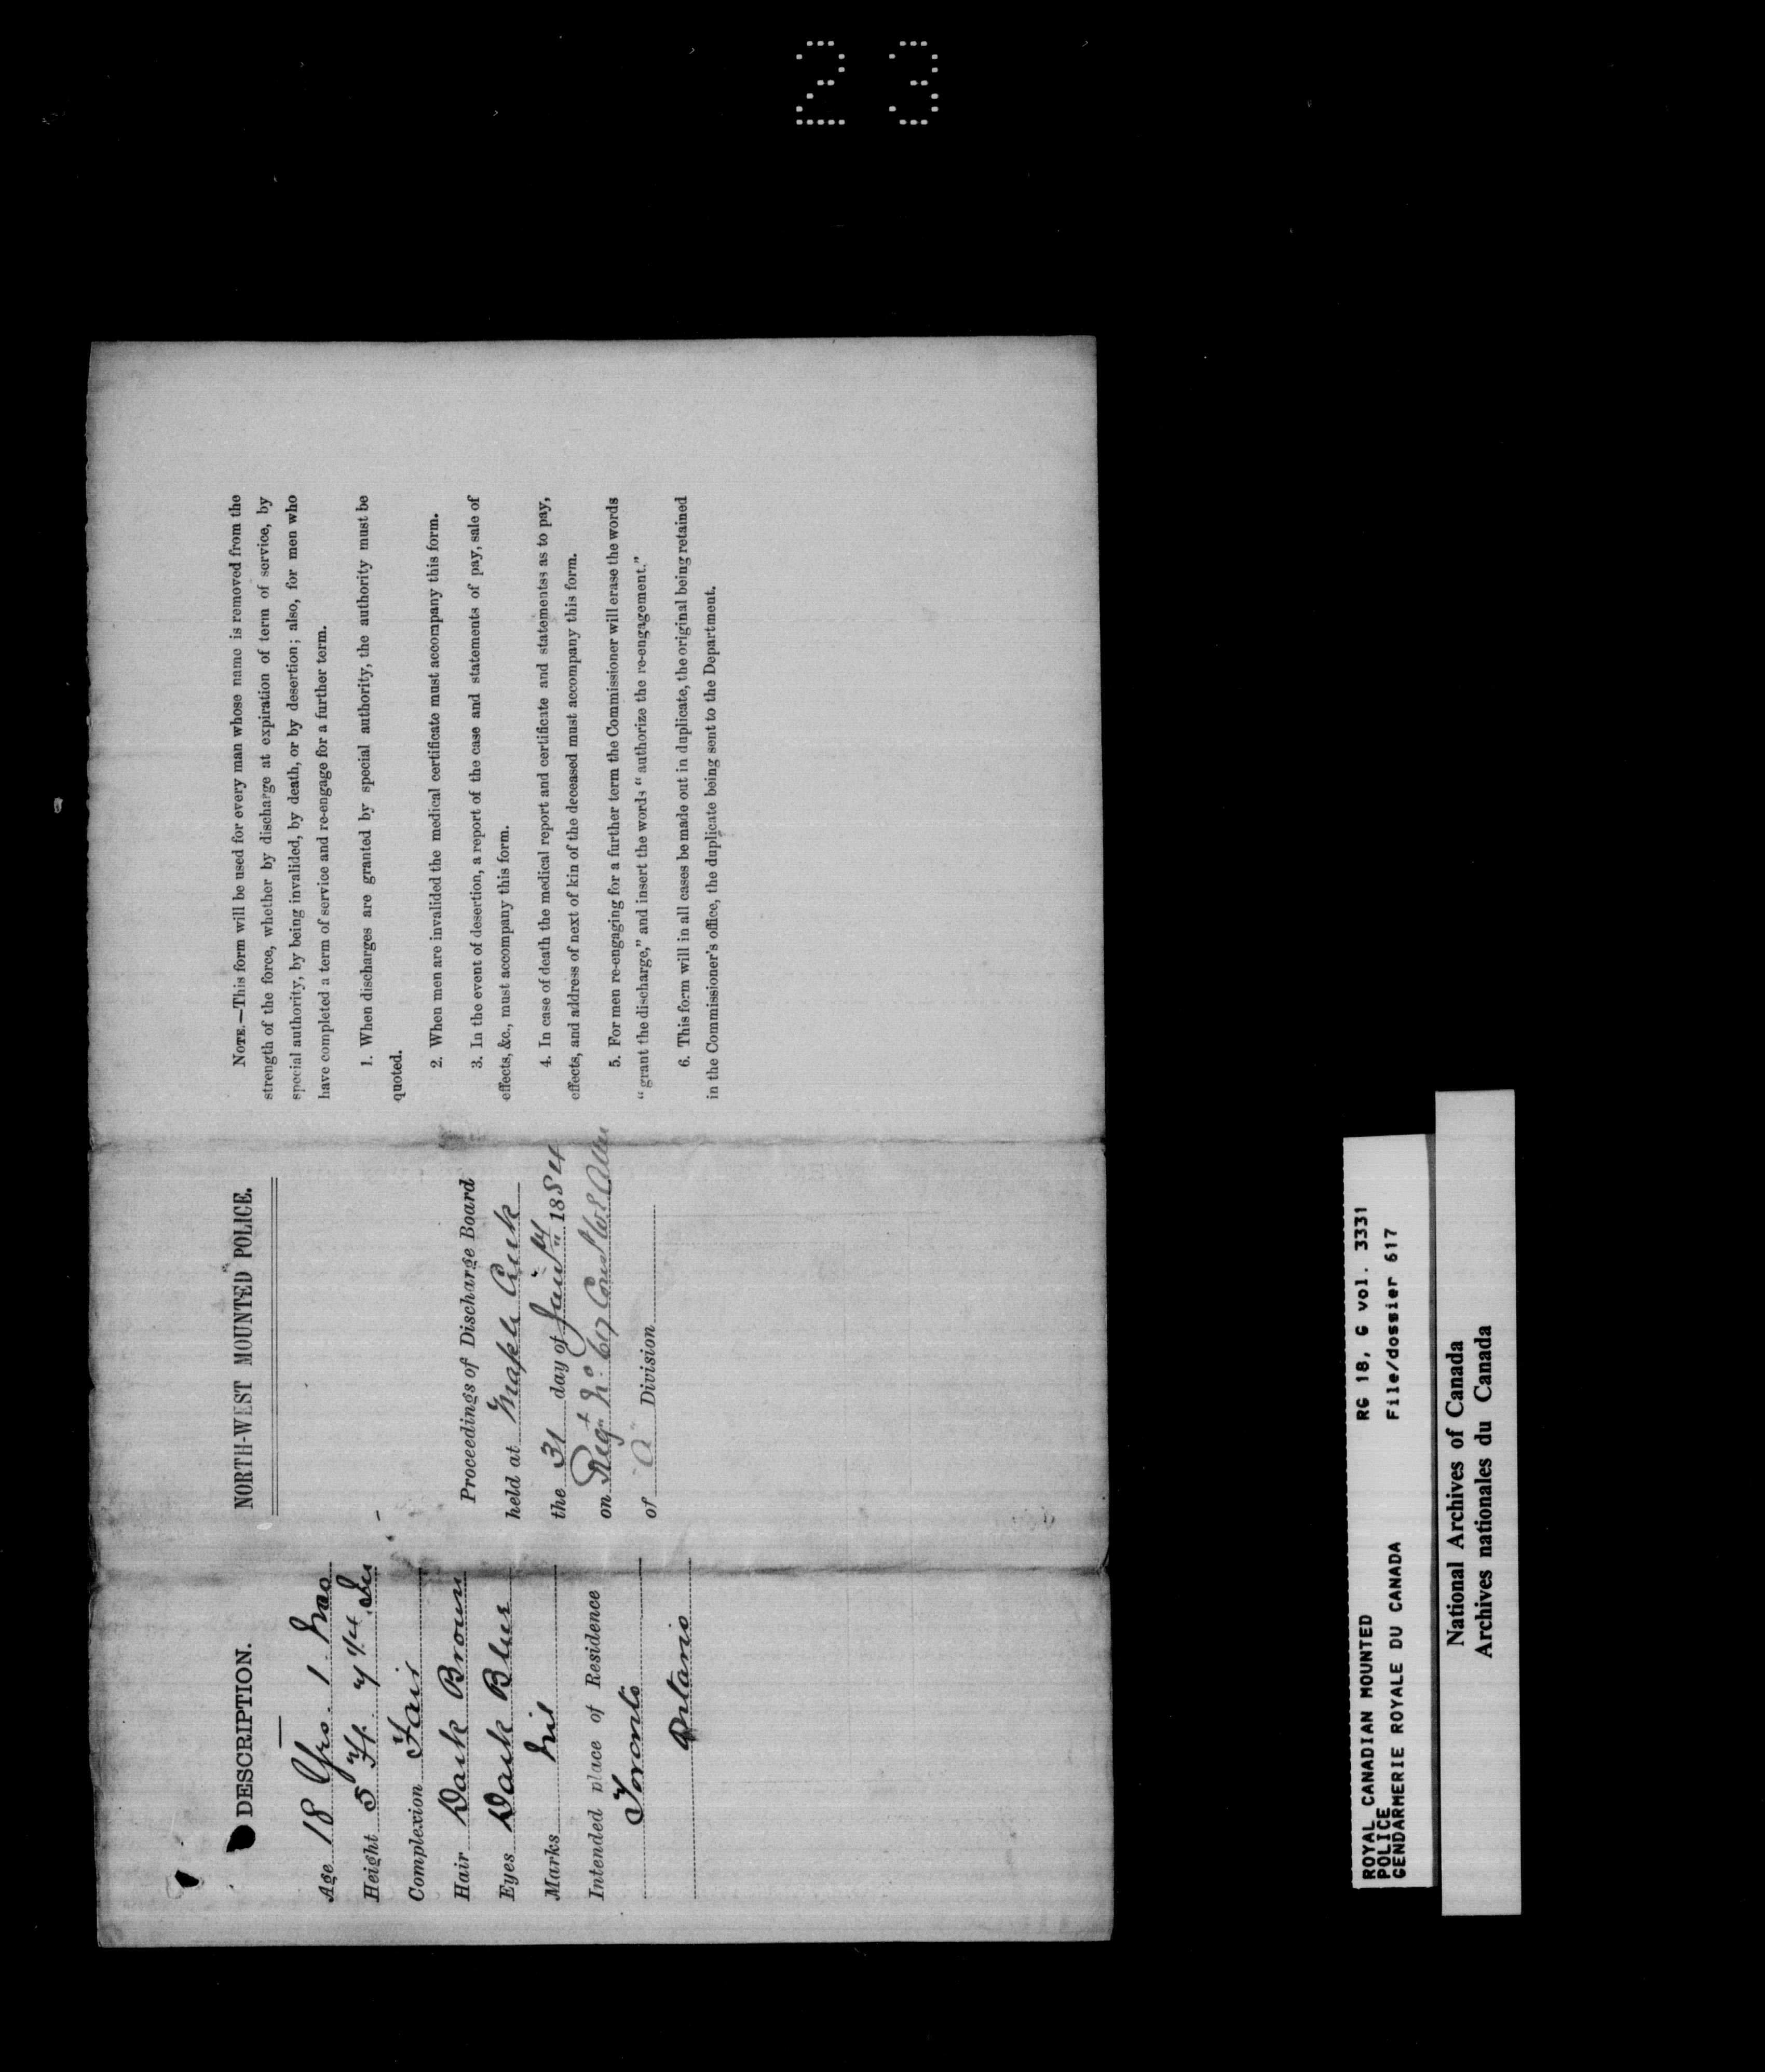 23
DESCRIPTION.
Age 18 Yrs. 1 mo
Height 5 Ft. 7 1/4 In
Complexion Fair
Hair Dark Brown
Eyes Dark Blue
Marks Nil
Intended place of Residence
Toronto
Ontario
NORTH-WEST MOUNTED POLICE.
Proceedings of Discharge Board
held at Maple Creek
the 31 day of Jan'y 1884
on Regt No 617 Const
of "A" Division
NOTE.—This form will be used for every man whose name is removed from the
strength of the force, whether by discharge at expiration of term of service, by
special authority, by being invalided, by death, or by desertion; also, for men who
have completed a term of service and re-engage for a further term.
1. When discharges are granted by special authority, the authority must be
quoted.
2. When men are invalided the medical certificate must accompany this form.
3. In the event of desertion, a report of the case and statements of pay, sale of
effects, &c., must accompany this form.
4. In case of death the medical report and certificate and statementss as to pay,
effects, and address of next of kin of the deceased must accompany this form.
5. For men re-engaging for a further term the Commissioner will erase the words
“grant the discharge,” and insert the words “authorize the re-engagement.”
6. This form will in all cases be made out in duplicate, the original being retained
in the Commissioner's office, the duplicate being sent to the Department.
ROYAL CANADIAN MOUNTED RG 18, G vol. 3331
POLICE
GENDARMERIE ROYALE DU CANADA File/dossier 617
National Archives of Canada
Archives nationales du Canada